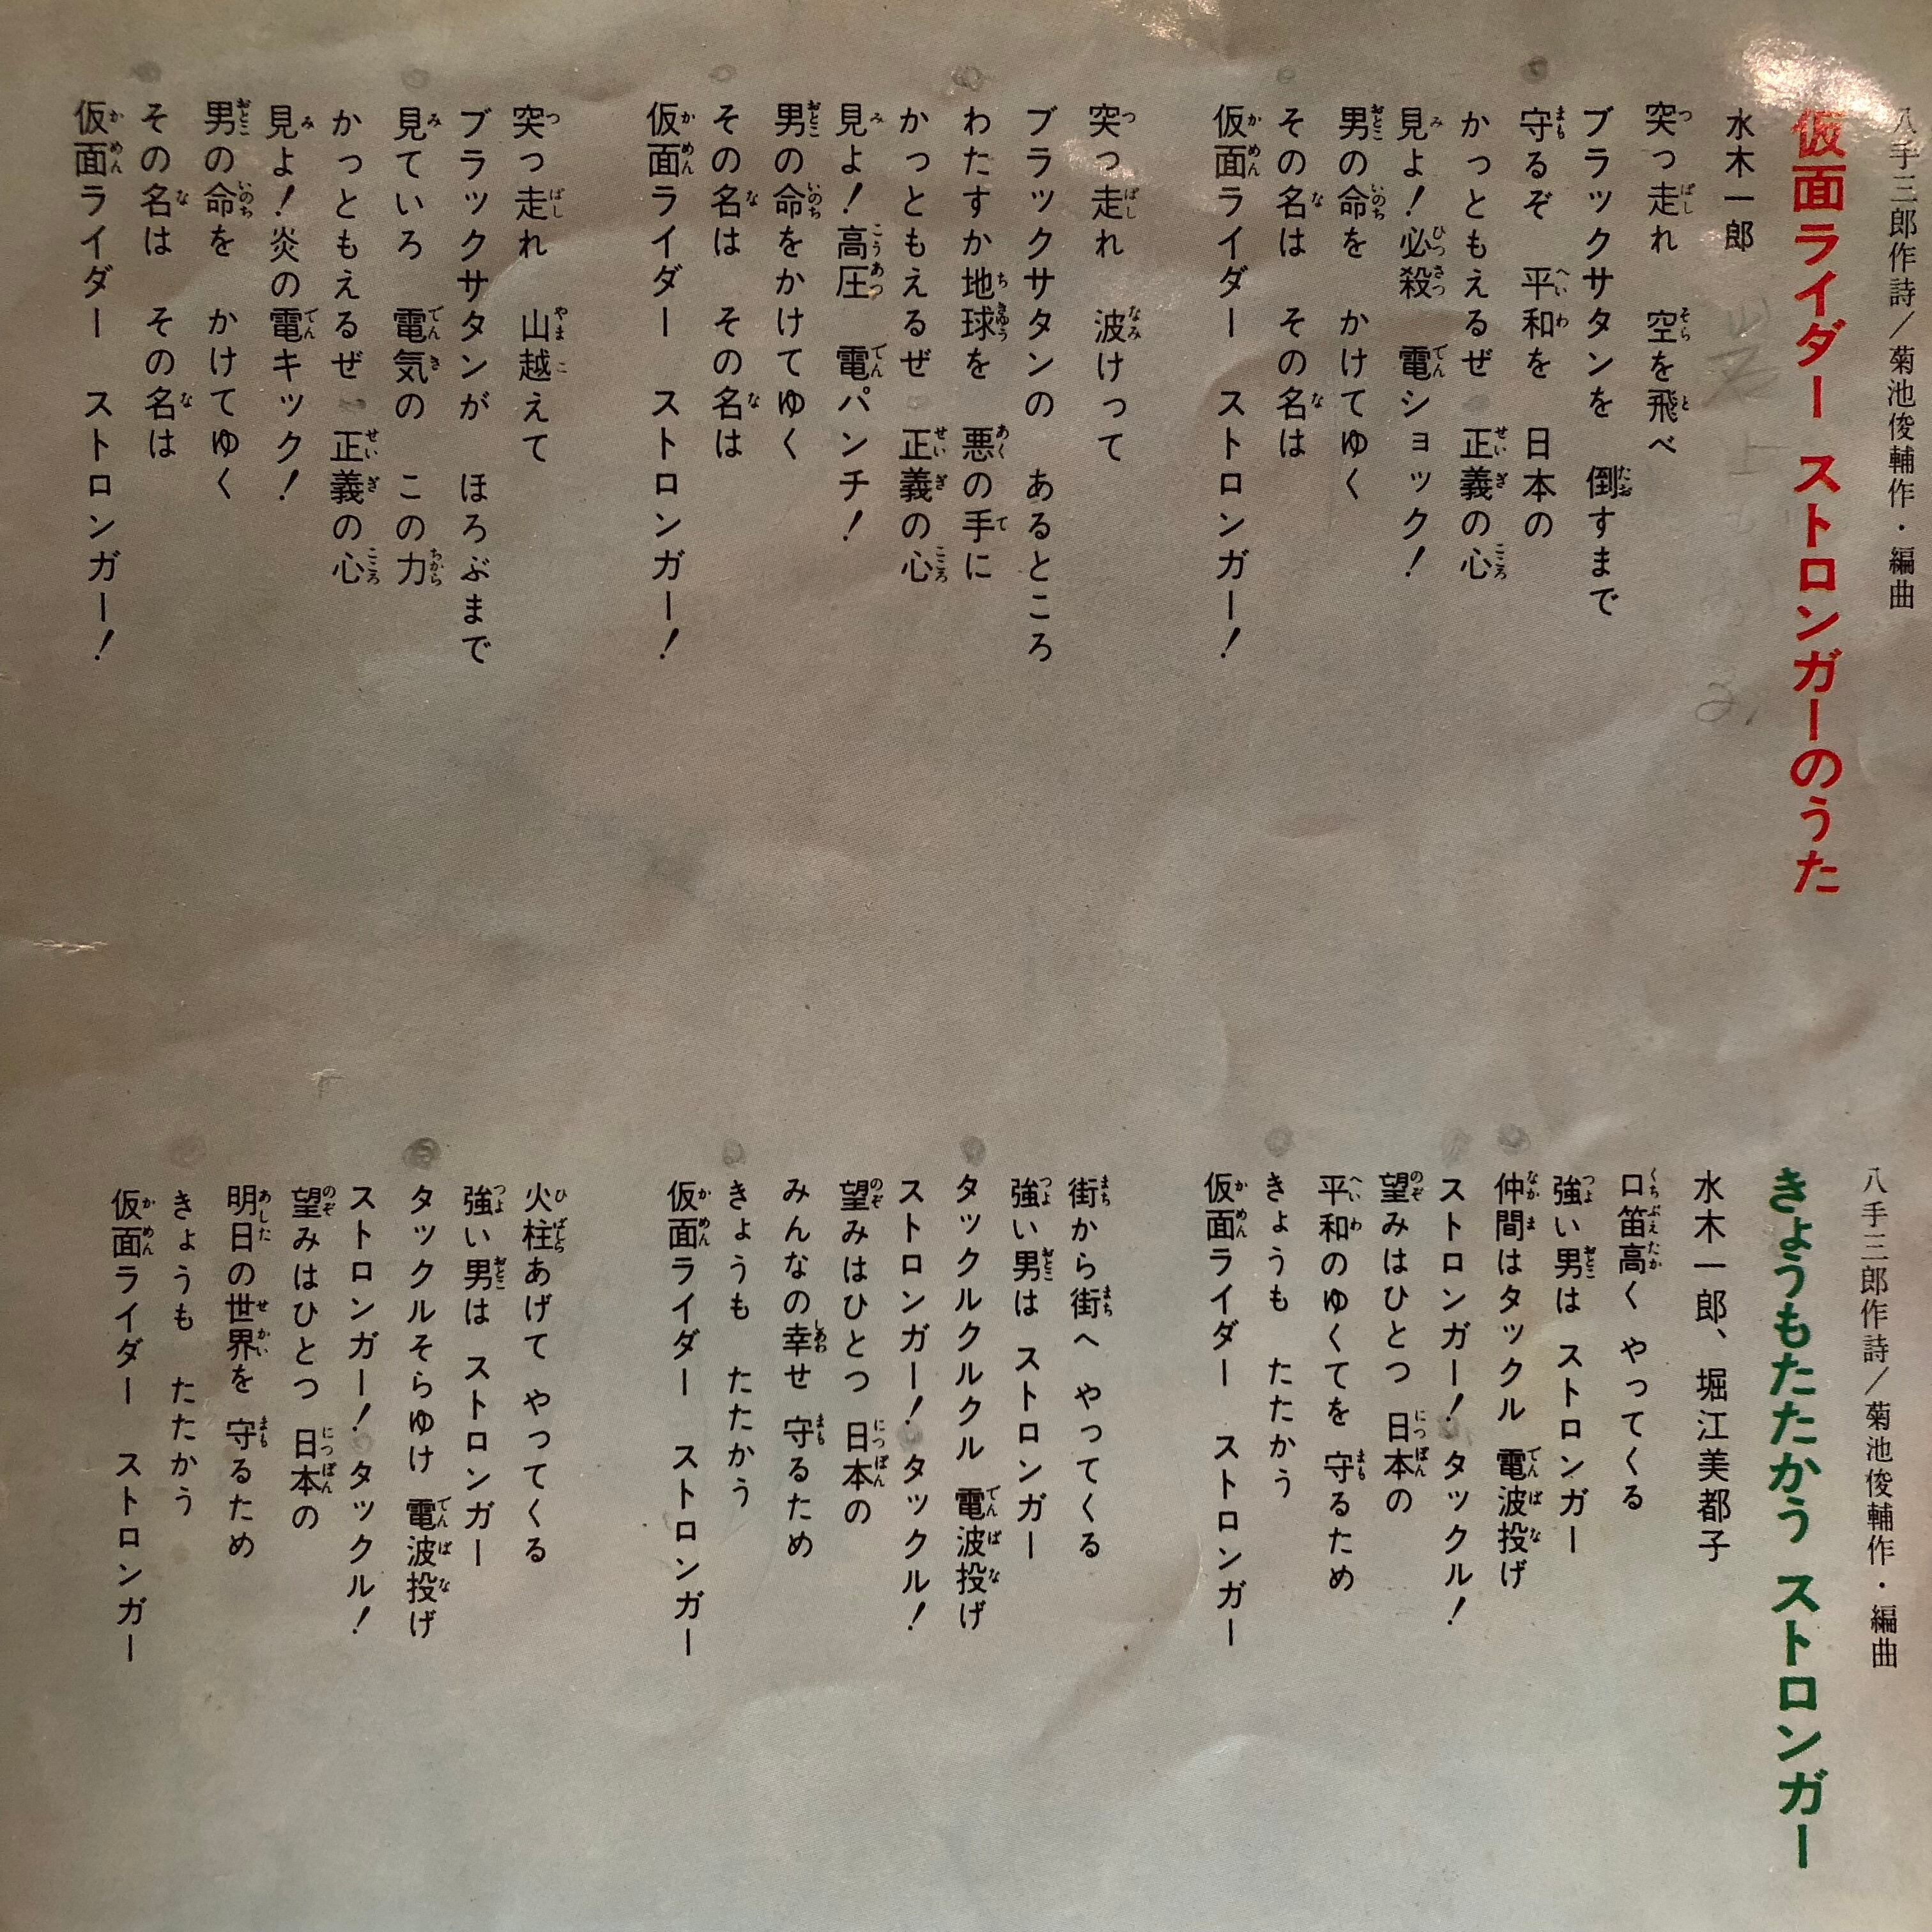 八手三郎作詩/菊池俊輔作・編曲
仮面ライダー ストロンガーのうた
水木一郎
突っ走れ 空を飛べ
ブラックサタンを 倒すまで
守るぞ 平和を 日本の
かっともえるぜ 正義の心
見よ!必殺 電ショック!
男の命を かけてゆく
その名は その名は
仮面ライダー ストロンガー!
突っ走れ 波けって
ブラックサタンの あるところ
わたすか地球を 悪の手に
かっともえるぜ 正義の心
見よ!高圧 電パンチ!
男の命をかけてゆく
その名は その名は
仮面ライダー ストロンガー!
突っ走れ 山越えて
ブラックサタンが ほろぶまで
見ていろ 電気の この力
かっともえるぜ 正義の心
見よ!炎の電キック!
男の命を かけてゆく
その名は その名は
仮面ライダー ストロンガー!
八手三郎作詩/菊池俊輔作・編曲
きょうもたたかう ストロンガー
水木一郎、堀江美都子
口笛高く やってくる
強い男は ストロンガー
仲間はタックル 電波投げ
ストロンガー!タックル!
望みはひとつ 日本の
平和のゆくてを 守るため
きょうも たたかう
仮面ライダー ストロンガー
街から街へ やってくる
強い男は ストロンガー
タックルクルクル 電波投げ
ストロンガー!タックル!
望みはひとつ 日本の
みんなの幸せ 守るため
きょうも たたかう
仮面ライダー ストロンガー
火柱あげて やってくる
強い男は ストロンガー
タックルそらゆけ 電波投げ
ストロンガー!タックル!
望みはひとつ 日本の
明日の世界を 守るため
きょうも たたかう
仮面ライダー ストロンガー